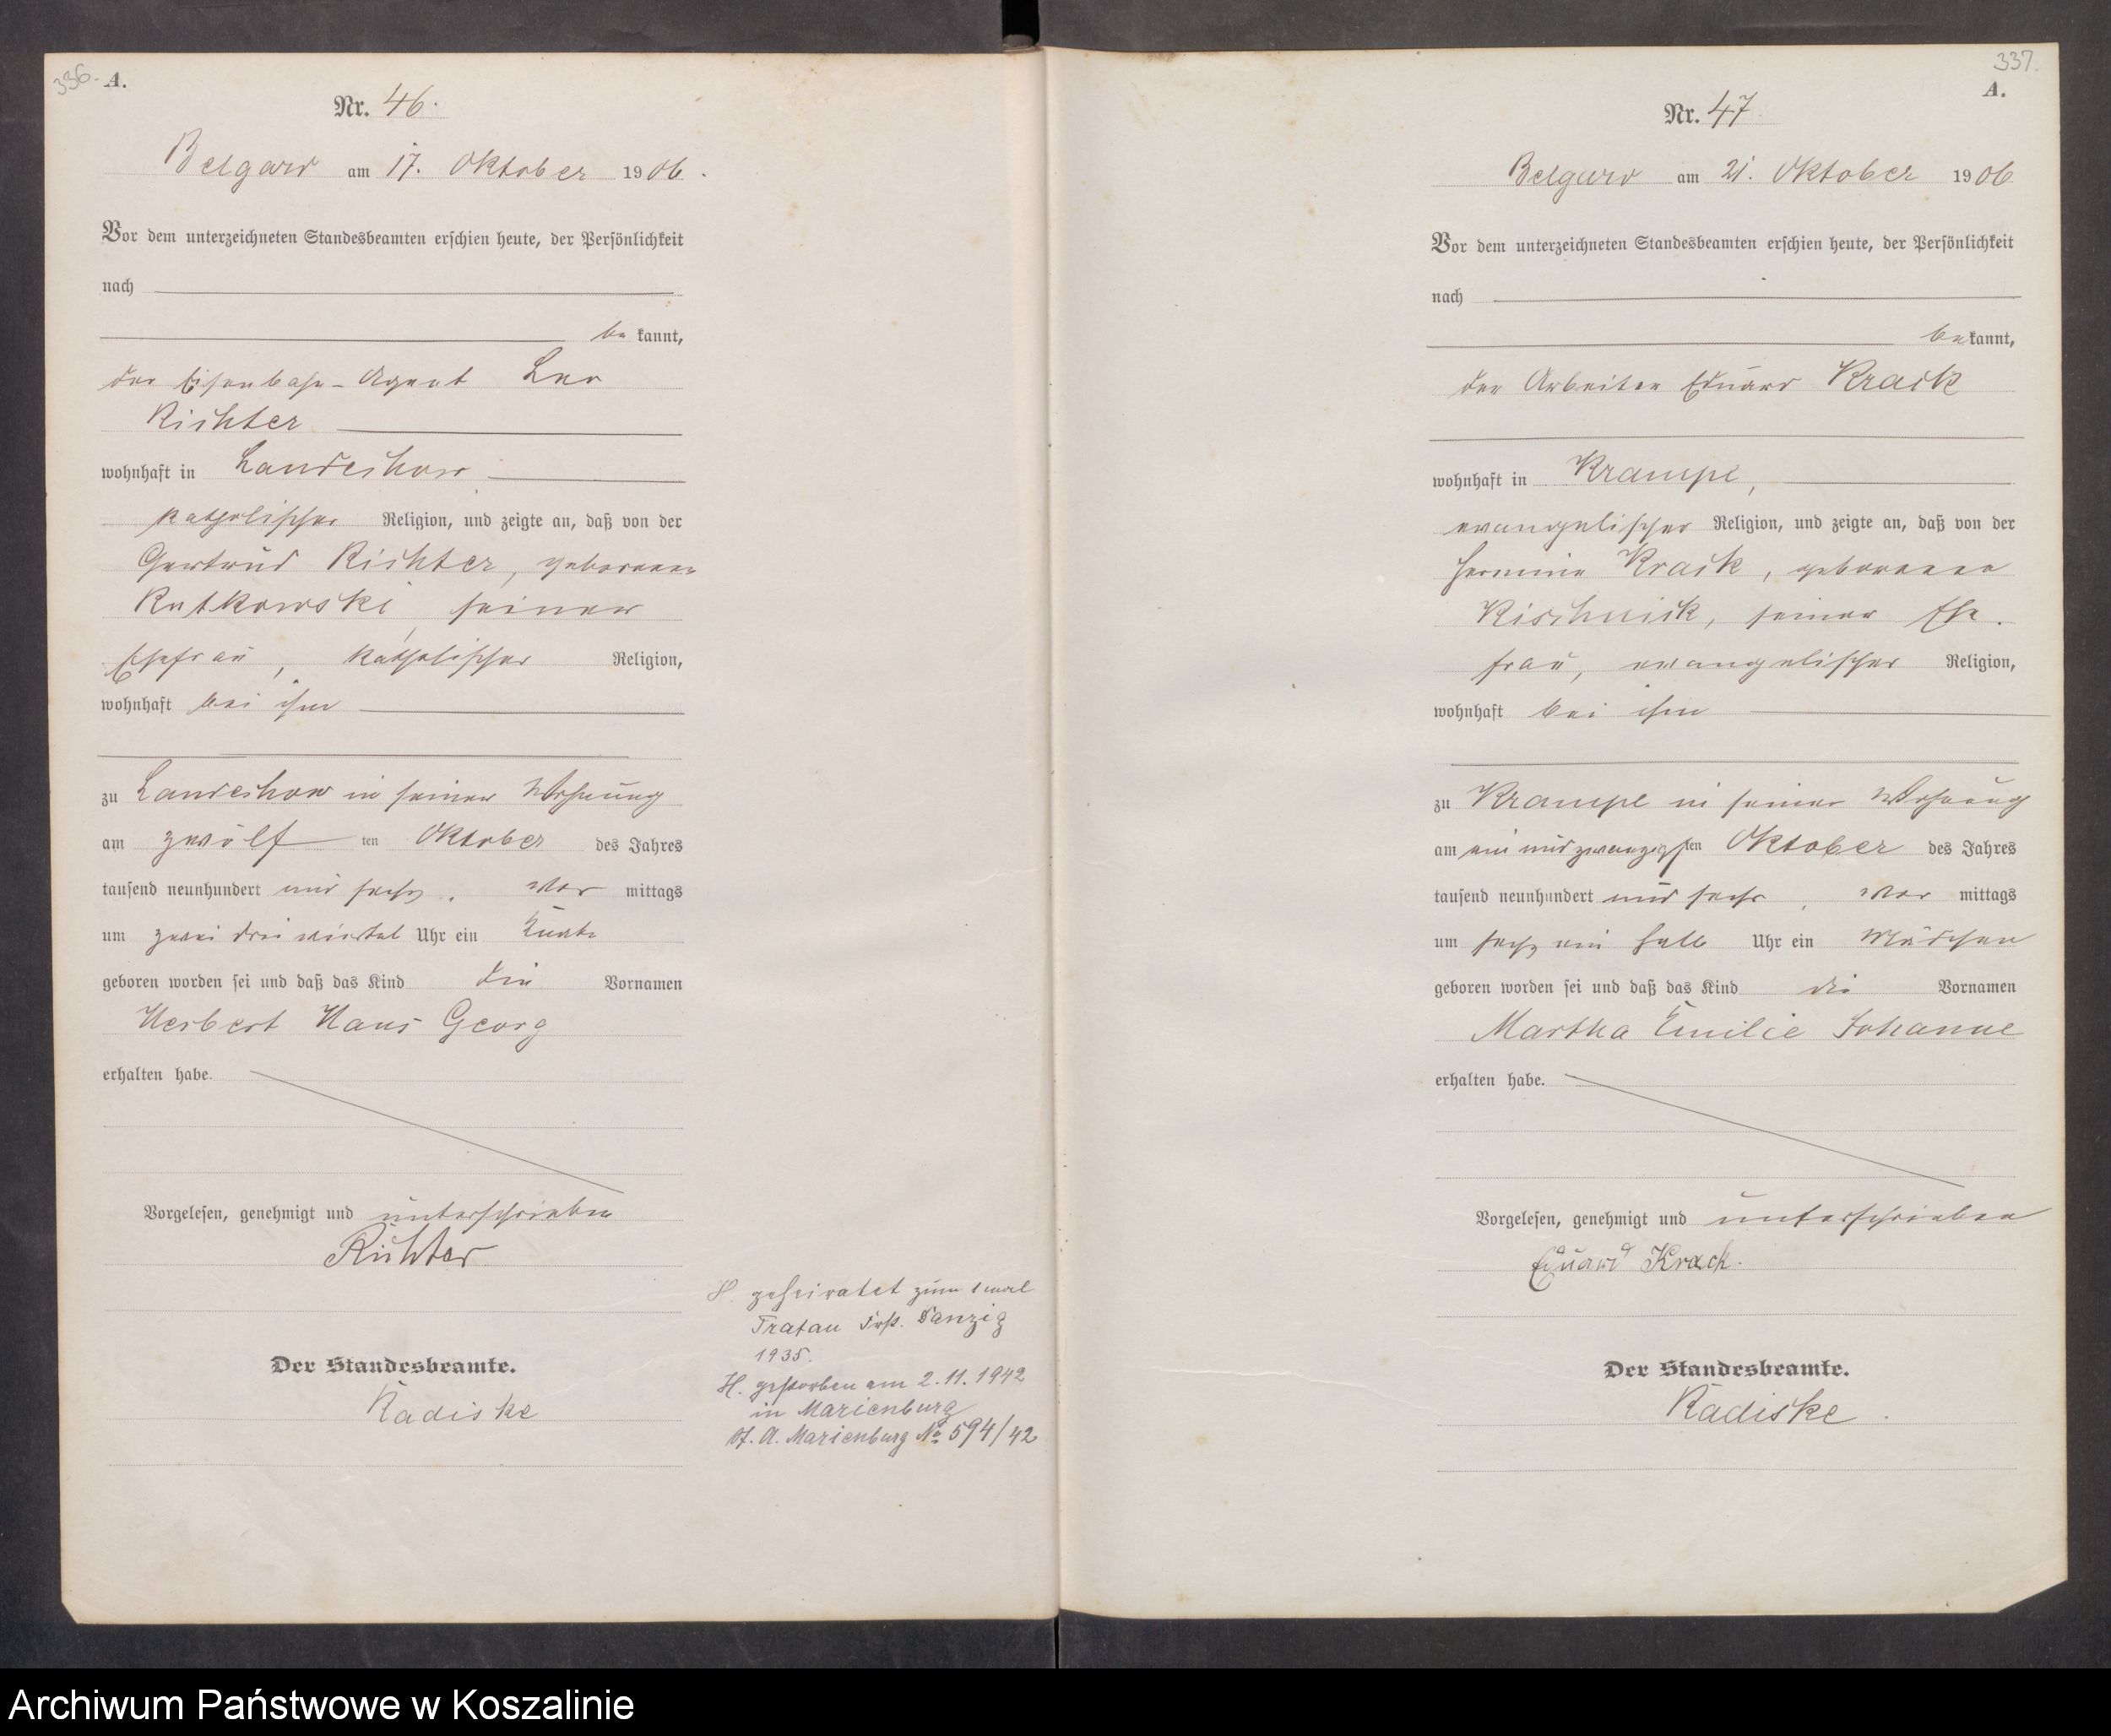 336.
A.
Nr. 46.
Belgard am 17. Oktober 1906.
Vor dem unterzeichneten Standesbeamten erschien heute, der Persönlichkeit
nach
bekannt,
der Eisenbahn-Agent Leo
Richter
wohnhaft in Landechow
katholischer Religion, und zeigte an, daß von der
Gertrud Richter, geborenen
Rutkowski, seiner
Ehefrau, katholischer Religion,
wohnhaft bei ihm
zu Landechow in seiner Wohnung
am zwölften Oktober des Jahres
tausend neunhundert und sechs, Vormittags
um zwei drei viertel Uhr ein Knabe
geboren worden sei und daß das Kind die Vornamen
Herbert Hans Georg
erhalten habe.
Vorgelesen, genehmigt und unterschrieben
Richter
Der Standesbeamte.
Radiske
H. geheiratet zum 1 mal
Danzig
1935.
H. gestorben am 2.11.1942
in Marienburg
St. A. Marienburg No 594/42
337.
A.
Nr. 47
Belgard am 21. Oktober 1906
Vor dem unterzeichneten Standesbeamten erschien heute, der Persönlichkeit
nach
bekannt,
der Arbeiter Eduard Krack
wohnhaft in Krampe,
evangelischer Religion, und zeigte an, daß von der
Hermine Krack, geborenen
Kischnick, seiner Ehe-
frau, evangelischer Religion,
wohnhaft bei ihm
zu Krampe in seiner Wohnung
am ein und zwanzigsten Oktober des Jahres
tausend neunhundert und sechs, Vormittags
um sechs ein halb Uhr ein Mädchen
geboren worden sei und daß das Kind die Vornamen
Martha Emilie Johanne
erhalten habe.
Vorgelesen, genehmigt und unterschrieben
Eduard Krack.
Der Standesbeamte.
Radiske.
Archiwum Państwowe w Koszalinie